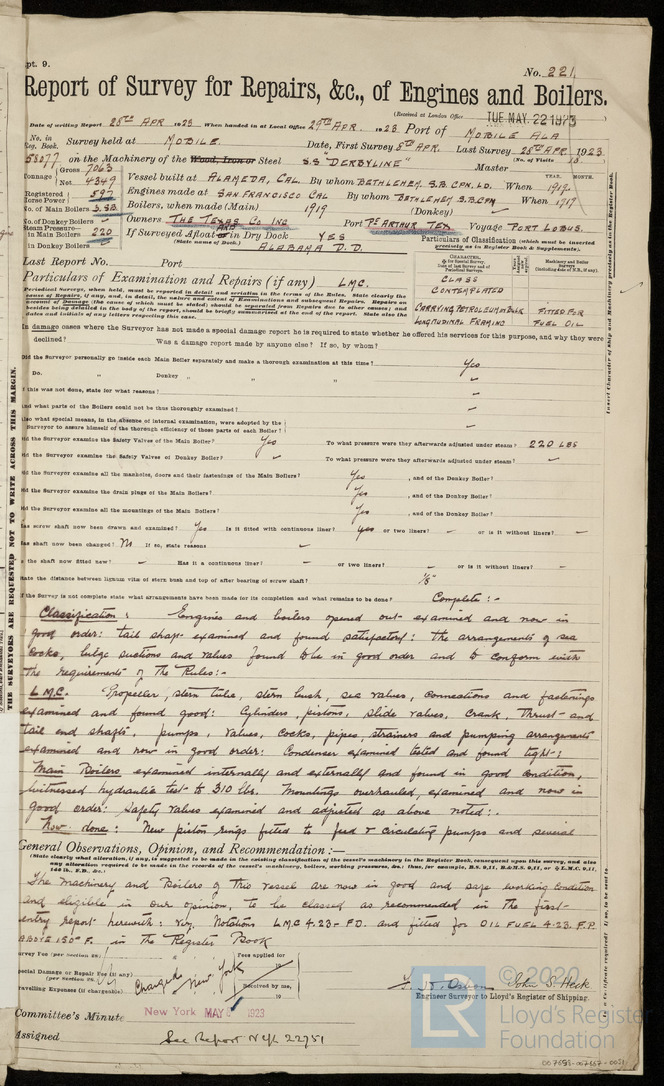 pt. 9.
No. 221
Report of Survey for Repairs, &c., of Engines and Boilers.
(Received at London Office TUE. MAY. 22 1923
Date of writing Report 28th APR 1923 When handed in at Local Office 29th APR. 1923 Port of MOBILE ALA
No. in Reg. Book. Survey held at MOBILE. Date, First Survey 5th APR. Last Survey 28th APR 1923
on the Machinery of the Wood, Iron or Steel S.S "DERBYLINE" Master (No. of Visits
Tonnage Gross 7063 Net 4349 Vessel built at ALAMEDA, CAL. By whom BETHLEHEM. S.B. CPN. LD. When 1919
Registered Horse Power 597 Engines made at SAN FRANCISCO CAL By whom BETHLEHEM S.B. CPN When 1919
No. of Main Boilers 3. SB. Boilers, when made (Main) 1919 (Donkey)
No. of Donkey Boilers Owners THE TEXAS Co INC Port Pt ARTHUR TEX Voyage PORT LOBOS.
Steam Pressure in Main Boilers 220 If Surveyed Afloat AND in Dry Dock YES
in Donkey Boilers (State name of Dock.) ALABAMA D.D.
Particulars of Classification (which must be inserted precisely as in Register Book & Supplements).
Last Report No. Port
CLASS CONTEMPLATED
CARRYING PETROLEUM IN BULK FITTED FOR
LONGITUDINAL FRAMING FUEL OIL
Particulars of Examination and Repairs (if any) LMC.
In damage cases where the Surveyor has not made a special damage report he is required to state whether he offered his services for this purpose, and why they were
declined? Was a damage report made by anyone else? If so, by whom?
Did the Surveyor personally go inside each Main Boiler separately and make a thorough examination at this time? Yes
Do. " Donkey " " " "
If this was not done, state for what reasons?
And what parts of the Boilers could not be thus thoroughly examined?
Also what special means, in the absence of internal examination, were adopted by the
Surveyor to assure himself of the thorough efficiency of these parts of each Boiler?
Did the Surveyor examine the Safety Valves of the Main Boiler? Yes To what pressure were they afterwards adjusted under steam? 220 LBS
Did the Surveyor examine the Safety Valves of Donkey Boiler? To what pressure were they afterwards adjusted under steam?
Did the Surveyor examine all the manholes, doors and their fastenings of the Main Boilers? Yes , and of the Donkey Boiler?
Did the Surveyor examine the drain plugs of the Main Boilers? Yes , and of the Donkey Boiler?
Did the Surveyor examine all the mountings of the Main Boilers? Yes , and of the Donkey Boiler?
Has screw shaft now been drawn and examined? Yes Is it fitted with continuous liner? Yes or two liners? - or is it without liners? -
Has shaft now been changed? No If so, state reasons
Is the shaft now fitted new? - Has it a continuous liner? - or two liners? - or is it without liners? -
State the distance between lignum vitæ of stern bush and top of after bearing of screw shaft? 1/8"
If the Survey is not complete state what arrangements have been made for its completion and what remains to be done? Complete:-
Classification: Engines and boilers opened out examined and now in
good order: tail shaft examined and found satisfactory: The arrangements of sea
cocks, bilge suctions and valves found to be in good order and to conform with
the requirements of the Rules:-
L.M.C. Propeller, stern tube, stern bush, sea valves, connections and fastenings
examined and found good: Cylinders, pistons, slide valves, crank, Thrust and
tail end shafts, pumps, valves, cocks, pipes, strainers and pumping arrangements
examined and now in good order: Condenser examined tested and found tight:
Main Boilers examined internally and externally and found in good condition,
witnessed hydraulic test to 310 lbs. Mountings overhauled, examined and now in
good order: Safety valves examined and adjusted as above noted:
Now done: New piston rings fitted to feed & circulating pumps and several
General Observations, Opinion, and Recommendation:—
(State clearly what alteration, if any, is suggested to be made in the existing classification of the vessel's machinery in the Register Book, consequent upon this survey, and also
The Machinery and Boilers of this vessel are now in good and safe working condition
and eligible in our opinion, to be classed as recommended in the first
entry report herewith: viz. Notations LMC 4.23 - FD. and fitted for OIL FUEL 4.23. F.P.
ABOVE 150° F. in the Register Book
Survey Fee (per Section 28) Fees applied for
Special Damage or Repair Fee (if any) (per Section 28.) Charged New York
Travelling Expenses (if chargeable) Received by me,
John S. Heck
Engineer Surveyor to Lloyd's Register of Shipping.
Committee's Minute New York MAY 8 1923
Assigned See Report N.Y.k 22751
THE SURVEYORS ARE REQUESTED NOT TO WRITE ACROSS THIS MARGIN.
© 2020
LR
Lloyd's Register
Foundation